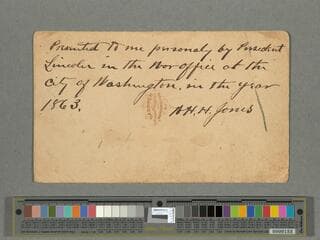 Presented to me personaly by President
Lincoln in the War office at the
City of Washington, in the year
1863.
A.H.H. Jones